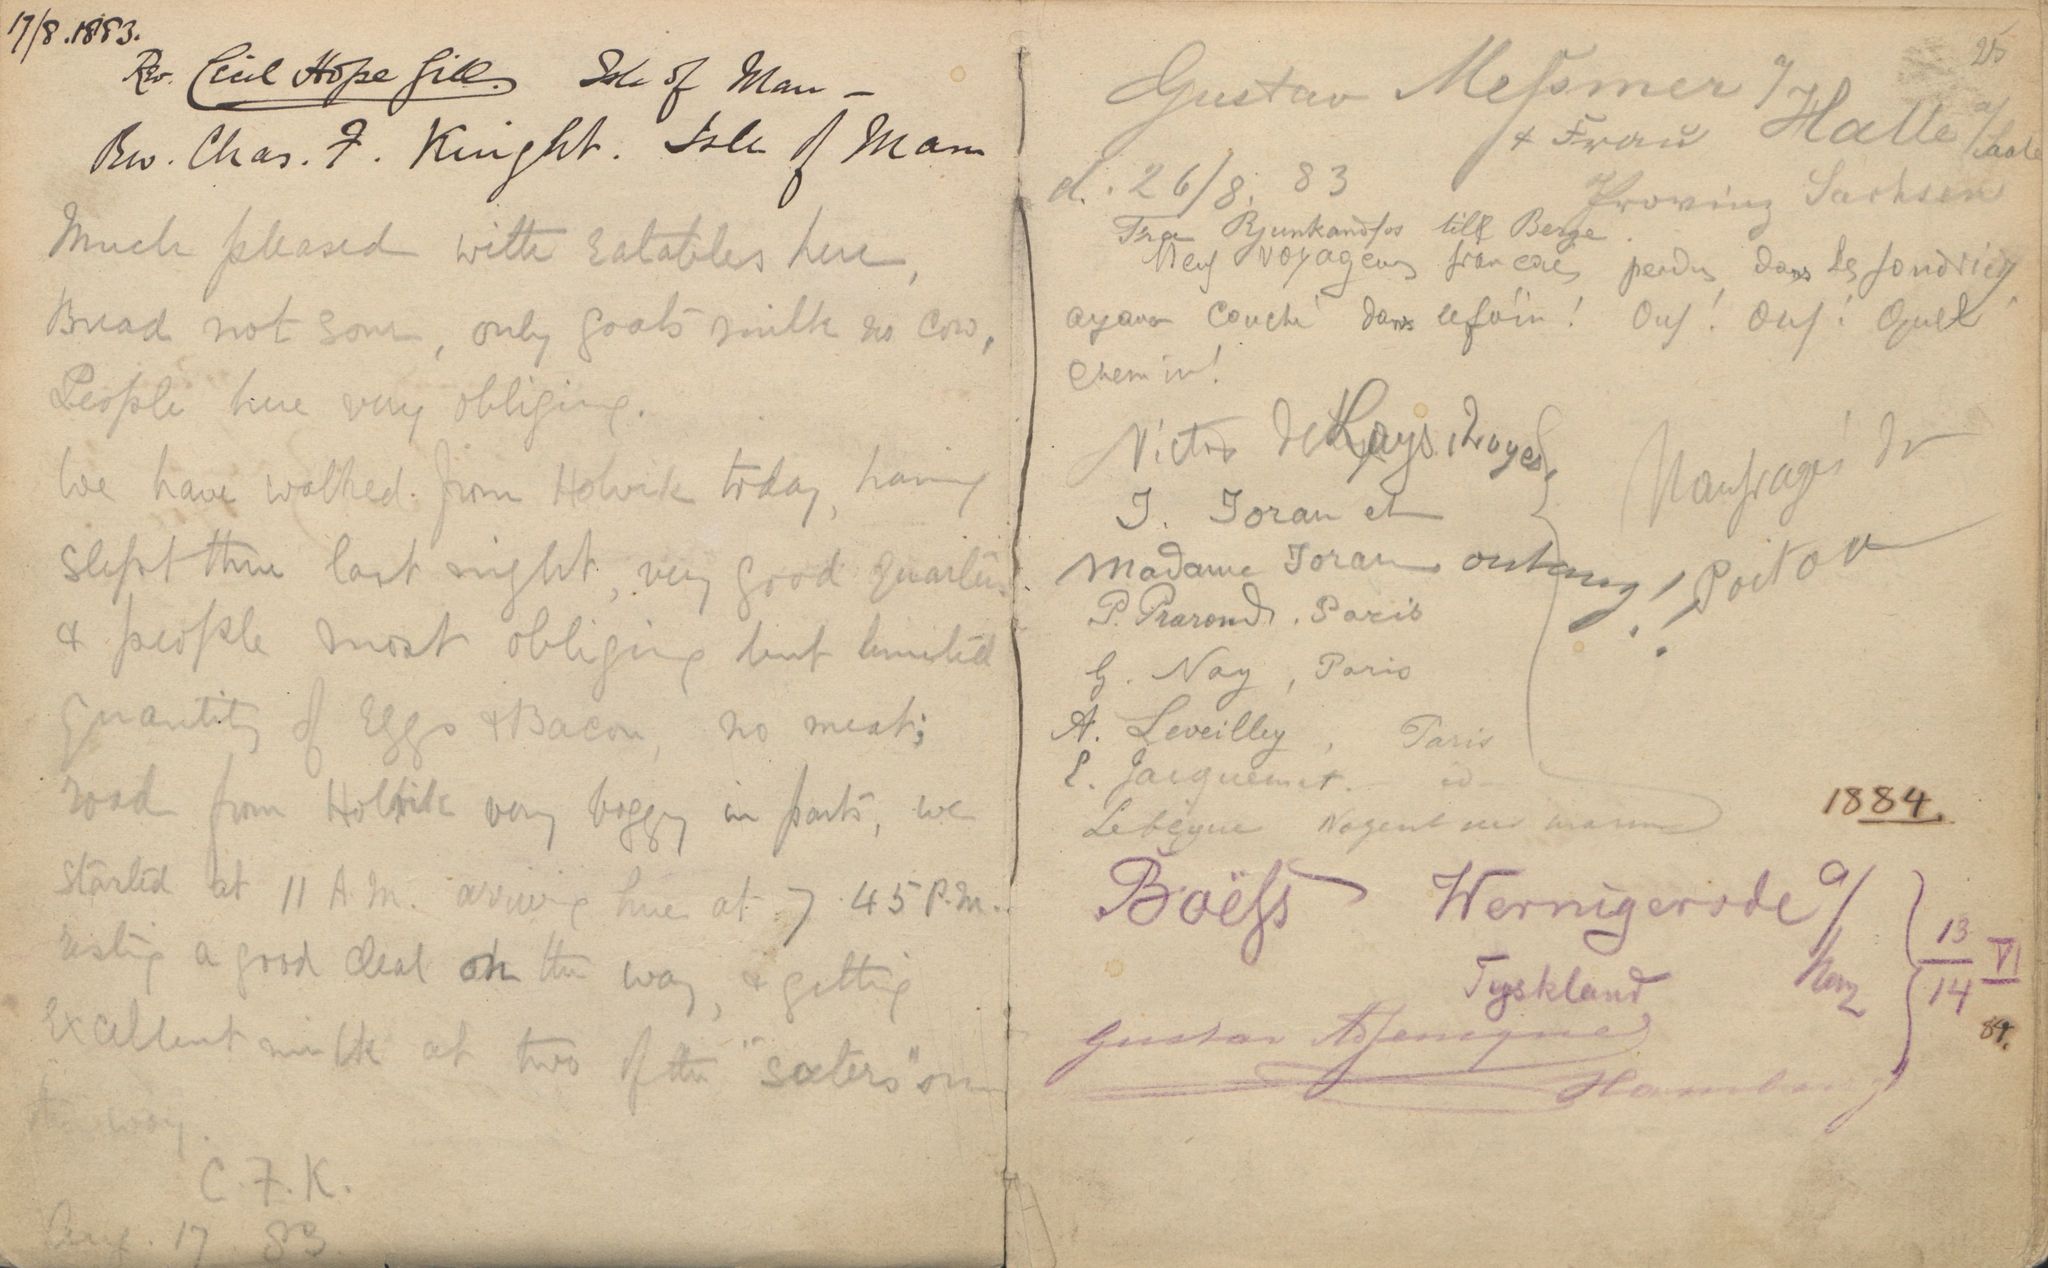 17/8.1883.
Rev. Cecil Hope Gill. Isle of Man –
Rev. Chas. F. Knight. Isle of Man
Much pleased with eatables here,
Bread not sour, only goats milk no cow,
People here very obliging.
We have walked from Holvik today, having
slept there last night, very good quarters
& people most obliging but limited
quantity of Eggs & Bacon, no meat;
road from Holvik very boggy in parts, we
started at 11 A.M. arriving here at 7 45 P.M.
resting a good deal on the way, & getting
excellent milk at two of the "sæters" on
the way.
C.F.K.
Aug. 17 83
25
Gustav Meßmer a/
& Frau Halle a/Saale
d. 26/8. 83 Provinz Sachsen
Fra Rjunkandfos till Berge.
Neuf voyageurs français perdus dans les fondrières
ayant couché dans le foin! Ouf! Ouf! Quel
chemin!
Victor
J. Joran et
Madame Joran
P. Prarond. Paris
G. Nay, Paris
A. Leveilley, Paris
E. Jacquemet – id –
Lebègue Nogent sur marne
Naufragés du
Poitou
1884.
Boëß Wernigerode a/
Harz
Tyskland
13/14 VI
84.
Gustav
Hamburg